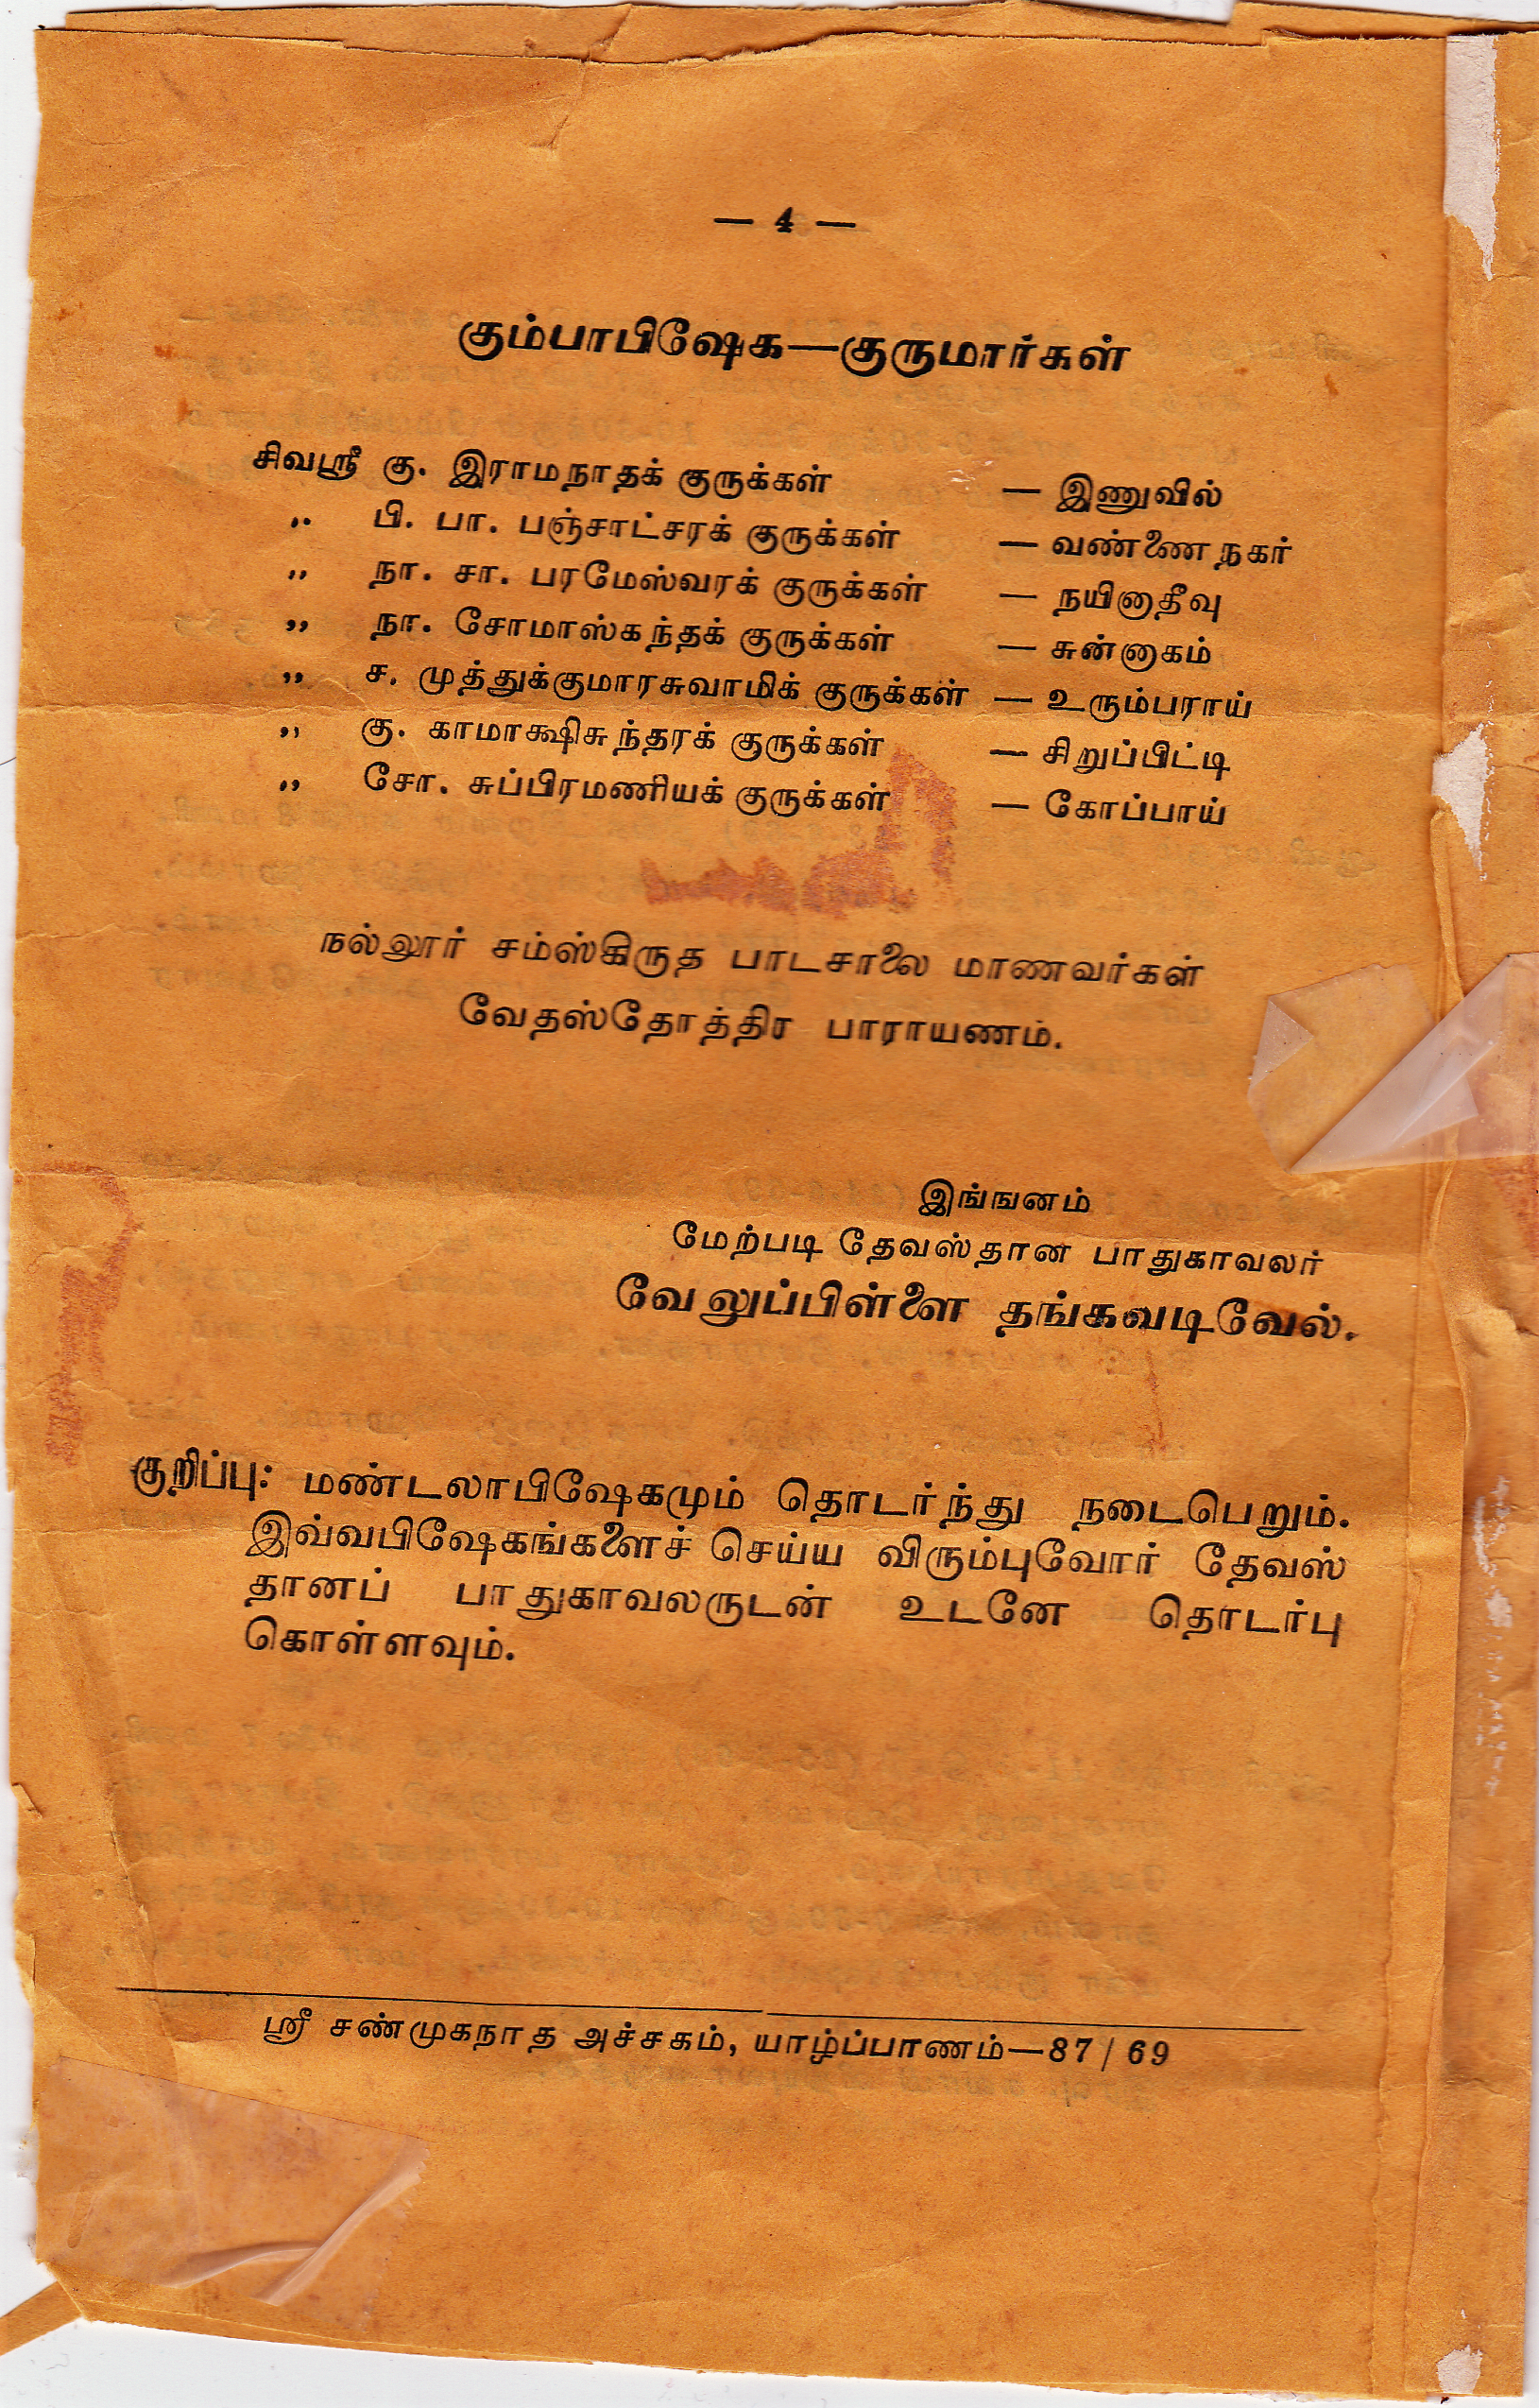 — 4 —
கும்பாபிஷேக—குருமார்கள்
சிவஸ்ரீ கு. இராமநாதக் குருக்கள் — இணுவில்
,, பி. பா. பஞ்சாட்சரக் குருக்கள் — வண்ணை நகர்
,, நா. சா. பரமேஸ்வரக் குருக்கள் — நயினாதீவு
,, நா. சோமாஸ்கந்தக் குருக்கள் — சுன்னாகம்
,, ச. முத்துக்குமாரசுவாமிக் குருக்கள் — உரும்பராய்
,, கு. காமாக்ஷிசுந்தரக் குருக்கள் — சிறுப்பிட்டி
,, சோ. சுப்பிரமணியக் குருக்கள் — கோப்பாய்
நல்லூர் சம்ஸ்கிருத பாடசாலை மாணவர்கள்
வேதஸ்தோத்திர பாராயணம்.
இங்ஙனம்
மேற்படி தேவஸ்தான பாதுகாவலர்
வேலுப்பிள்ளை தங்கவடிவேல்.
குறிப்பு: மண்டலாபிஷேகமும் தொடர்ந்து நடைபெறும்.
இவ்வபிஷேகங்களைச் செய்ய விரும்புவோர் தேவஸ்
தானப் பாதுகாவலருடன் உடனே தொடர்பு
கொள்ளவும்.
ஸ்ரீ சண்முகநாத அச்சகம், யாழ்ப்பாணம்—87 / 69